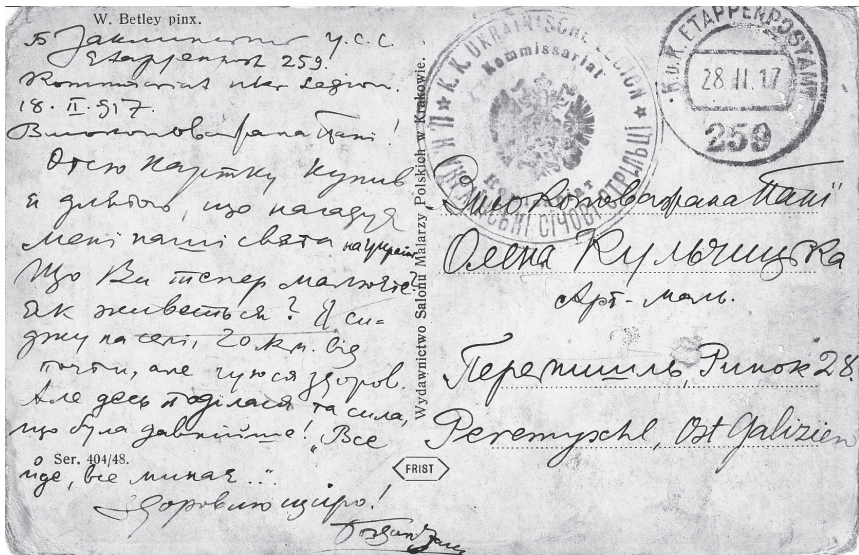 W. Betley pinx.
У.С.С.
Etappenpost 259.
Kommissariat ukr Legion.
18. II. 917.
Високоповажана Пані!
Отсю картку купив
я для того, що нагадує
мені наші свята на Україні
Що Ви тепер малюєте?
Як живеться? Я си-
джу на селі, 20 км. від
почти, але чуюся здоров.
Але десь поділася та сила,
що була давнійше! "Все
йде, все минає..."
Здоровлю щиро!
Ser. 404/48.
Wydawnictwo Salonu Malarzy Polskich w Krakowie.
FRIST
K.K. UKRAINISCHE LEGION
Kommissariat
Комісаріат
УКРАЇНСЬКІ СІЧОВІ СТРІЛЬЦІ
K.u.K. ETAPPENPOSTAMT
28.II.17
259
Високоповажана Пані
Олена Кульчицка
Арт-маль.
Перемишль, Ринок 28.
Peremyschl, Ost Galizien